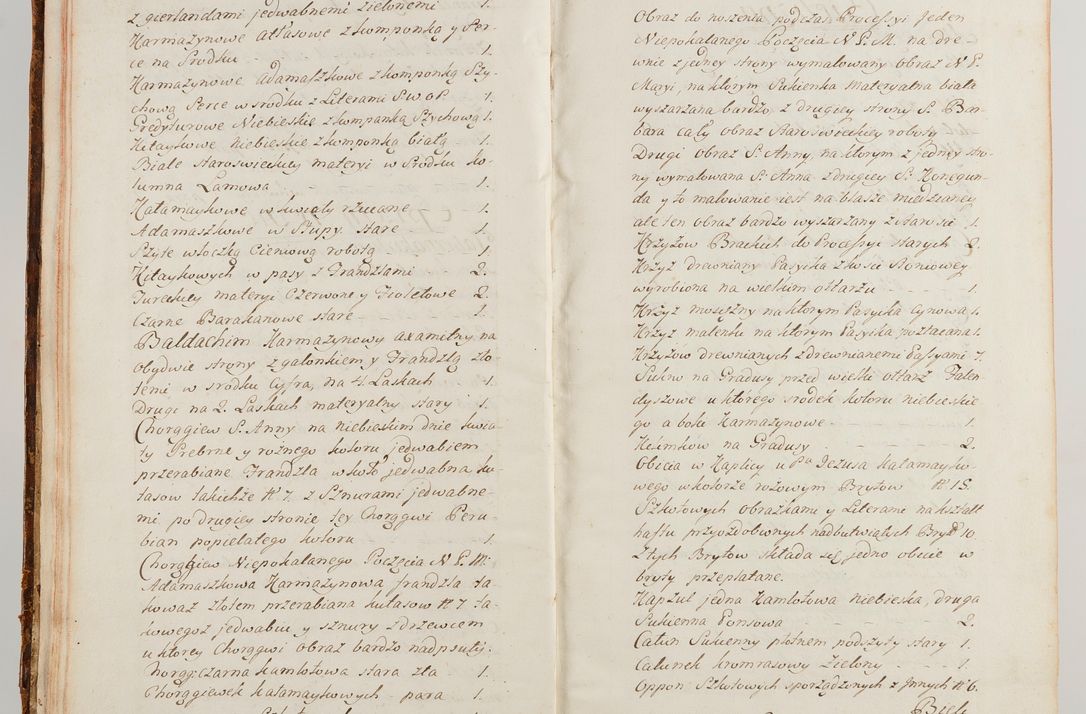 z gierlandami jedwabnemi zielonemi 1.
Karmazynowe atłasowe z komponką y Ser-
ce na Srodku - 1.
Karmazynowe adamaszkowe z komponką Szy-
chową Serce w srodku z Literami S.W.O.P. 1.
Gredyturowe Niebieskie z kompanką Szychową 1.
Kitaykowe niebieskie z komponką białą - 1.
Białe staroswieckiey materyi w Srodku ko-
lumna Lamowa - 1.
Kałamaykowe w kwiaty rzucane - 1.
Adamaszkowe w Słupy stare 1.
Szyte włoczką Cieniową robotą 1.
Kitaykowych w pasy z Frandzlami 2.
Tureckiey materyi Czerwone y Fioletowe 2.
Czarne Barakanowe stare - 1.
Baldachim Karmazynowy axamitny na
obydwie strony z galonkiem y Frandzlą zło-
temi w srodku Cyfra, na 4. Laskach 1.
Drugi na 2. Laskach materyalny stary 1.
Chorągiew S. Anny na niebieskim dnie kwia-
ty Srebrne y roznego koloru jedwabiem
przerabiane Frandzla w koło jedwabna ku-
tasow takichże N 7. z Sznurami jedwabne-
mi po drugiey stronie tey Chorągwi Peru-
bian popielatego koloru 1.
Chorągiew Niepokalanego Poczęcia N. P. M:
Adamaszkowa Karmazynowa frandzla ta-
kowaz złotem przerabiana kutasow N 7. ta-
kowegoż jedwabiu y sznury z drzewcem
u ktorey Chorągwi obraz bardzo nadpsuty.
Chorąg: czarna kamlotowa stara zła - 1.
Chorągiewek kałamaykowych para 1.
Obraz do noszenia podczas Processyi Jeden
Niepokalanego Poczęcia N P. M. na dre-
wnie z jedney strony wymalowany obraz N. P.
Maryi, na ktorym Sukienka Materyalna biała
wyszarzana bardzo z drugiey strony S. Bar-
bara cały obraz Staroswieckiey roboty
Drugi obraz S. Anny, na ktorym z jedney stro-
ny wymalowana S. Anna z drugiey S. Konegun-
da y to malowanie iest na blasze miedzianey
ale ten obraz bardzo wyszarzany z starosci 1.
Krzyżow Brackich do Processyi starych 2.
Krzyż drewniany Passyika z kości Słoniowey
wyrobiona na wielkim ołtarzu - 1.
Krzyż mosięzny na ktorym Passyika Cynowa 1.
Krzyż maleńki na ktorym Passyika pozłacana 1.
Krzyżow drewnianych z drewnianemi Passyami 7.
Sukno na Gradusy przed wielki ołtarz Falen-
dyszowe u ktorego srodek koloru niebieskie
go a boki Karmazynowe - 1.
Keimkow na Gradusy - 2.
Obicia w Kaplicy u Pa Jezusa Kałamayko-
wego w kolorze rożowym Brytow N 15.
Szkotowych obrazkami y Literami na kształt
haftu przyozdobionych nadbutwiałych Bryt 10.
Z tych Brytow składa się jedno obicie w
bryty przeplatane.
Kapzul jedna Kamlotowa niebieska, druga
Sukienna Ponsowa - 2.
Całun Sukienny płotnem podszyty stary 1.
Całunek kromrasowy Zielony - 1.
Oppon Szkotowych sporządzonych z Innych N 6.
Biele